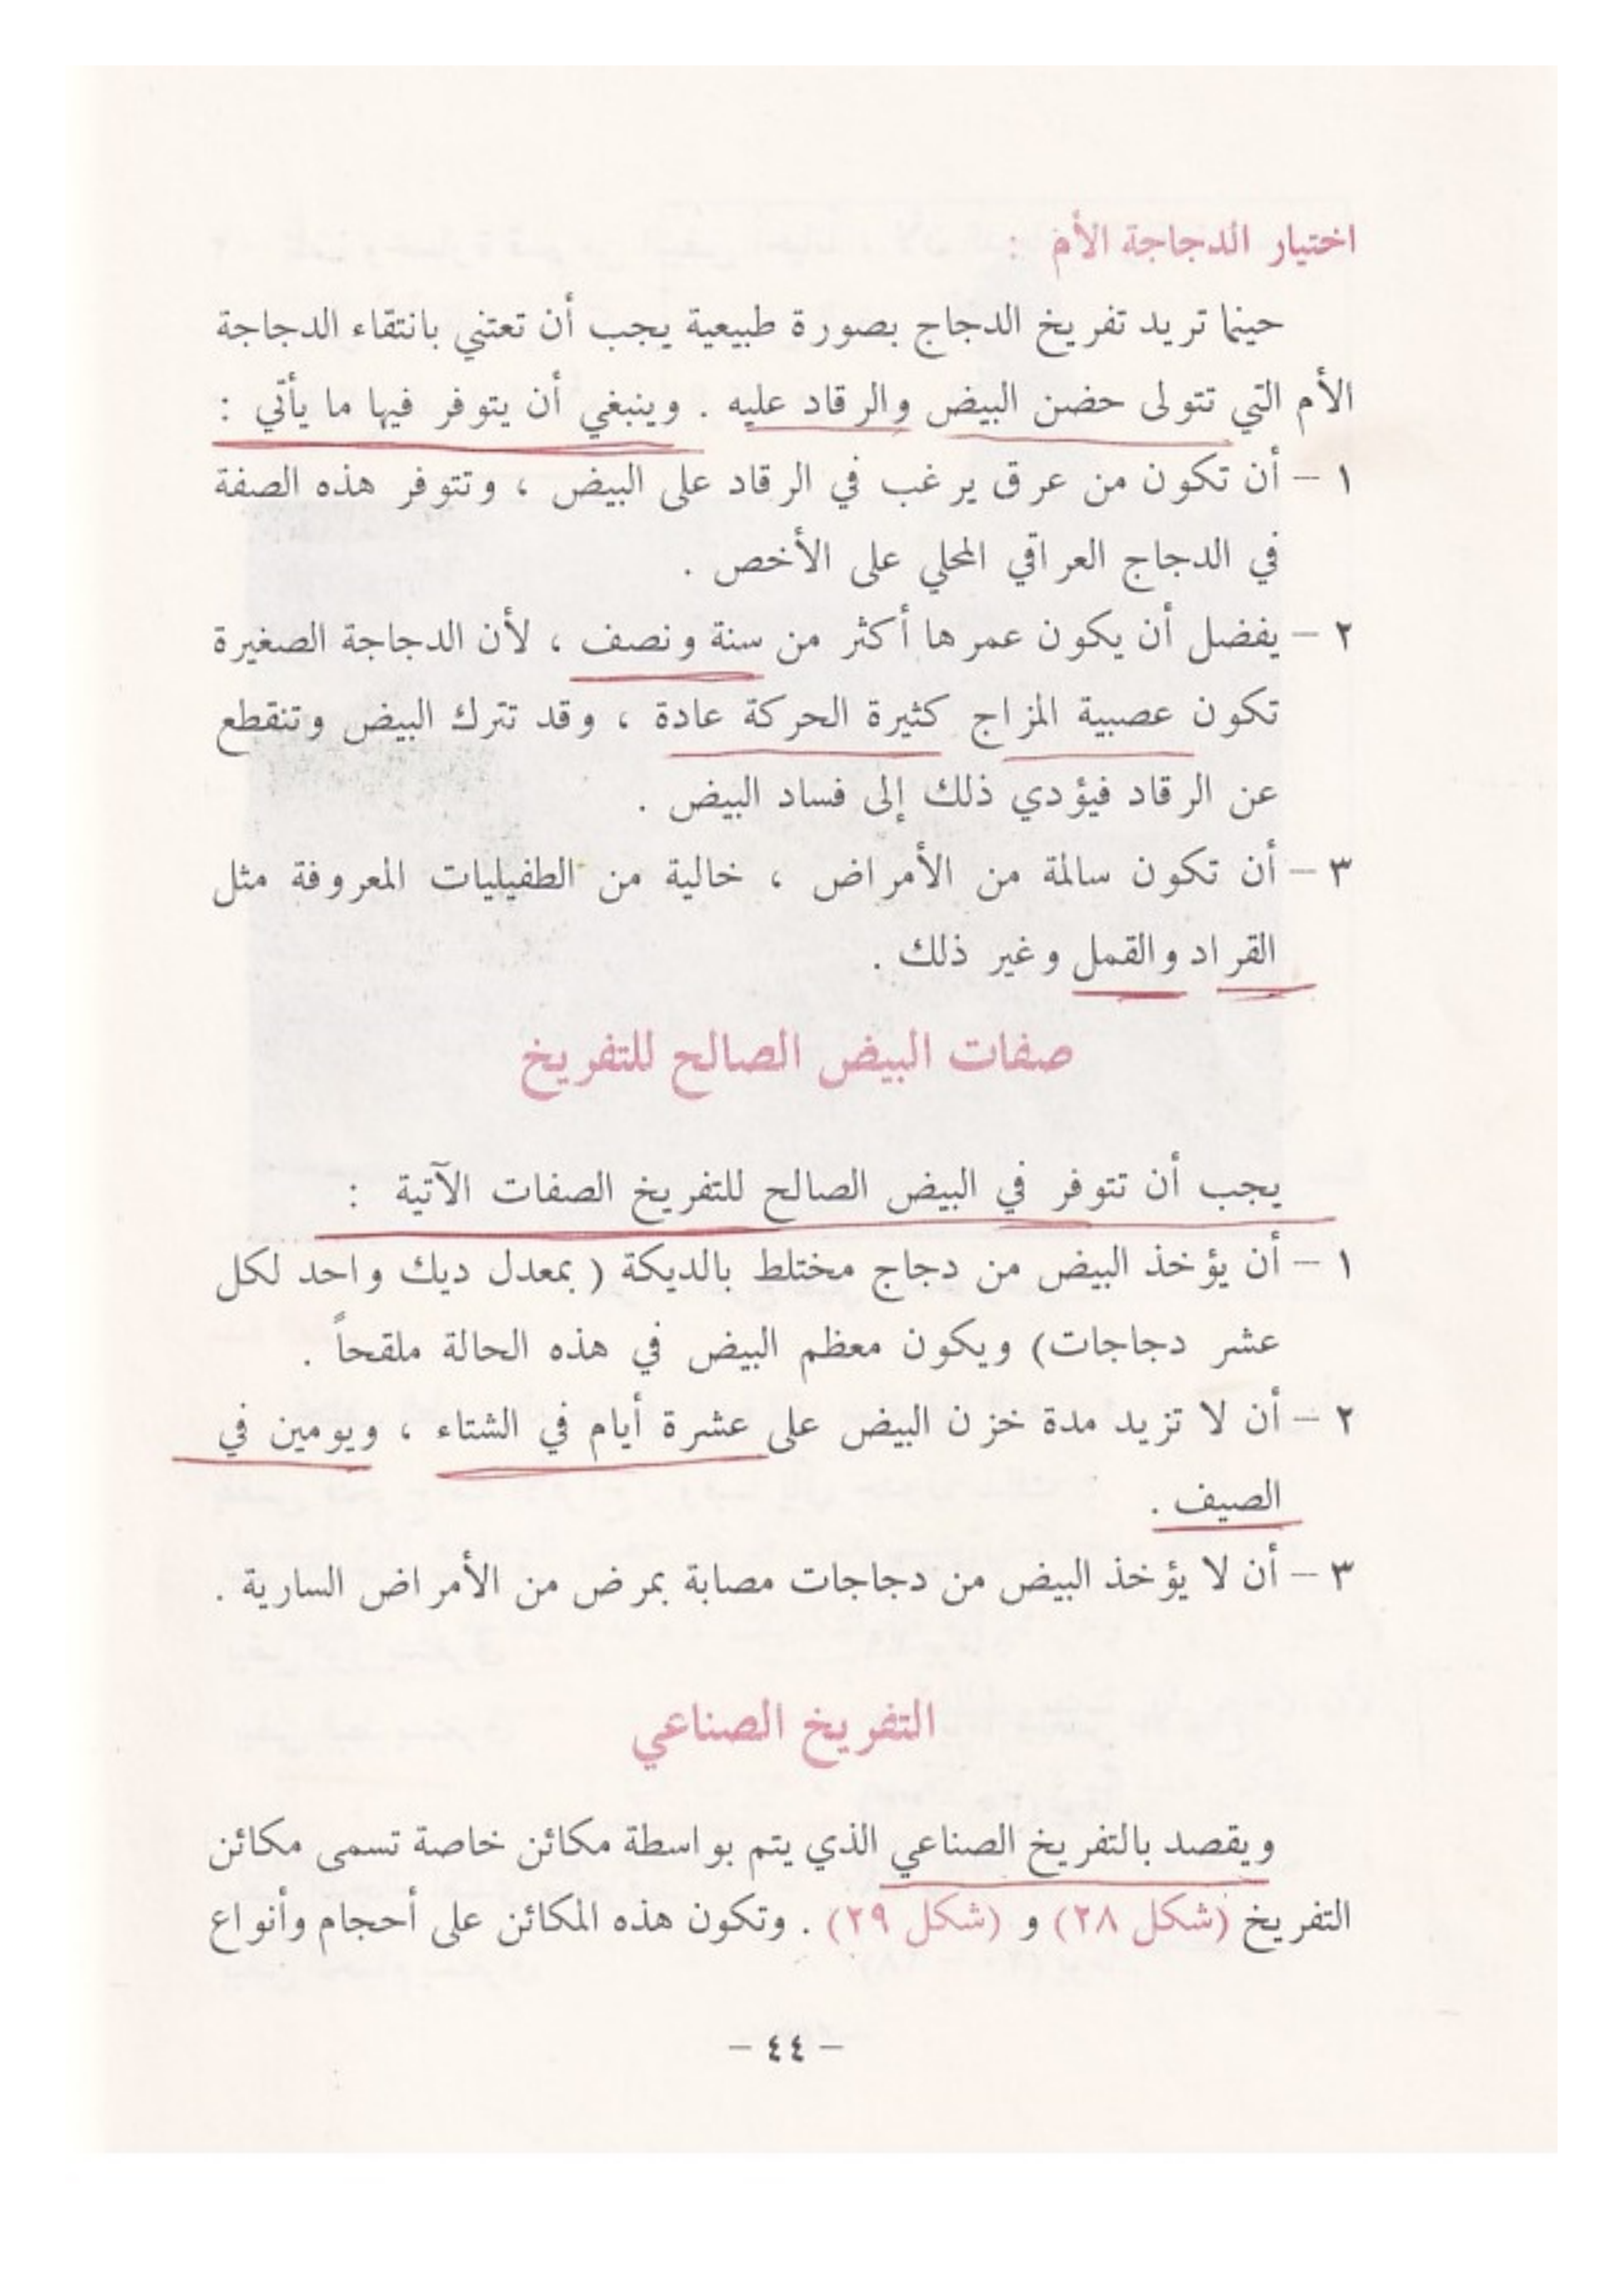 اختيار الدجاجة الأم :
حينما تريد تفريخ الدجاج بصورة طبيعية يجب أن تعتني بانتقاء الدجاجة
الأم التي تتولى حضن البيض والرقاد عليه . وينبغي أن يتوفر فيها ما يأتي :
١ – أن تكون من عرق يرغب في الرقاد على البيض ، وتتوفر هذه الصفة
في الدجاج العراقي المحلي على الأخص .
٢ – يفضل أن يكون عمرها أكثر من سنة ونصف ، لأن الدجاجة الصغيرة
تكون عصبية المزاج كثيرة الحركة عادة ، وقد تترك البيض وتنقطع
عن الرقاد فيؤدي ذلك إلى فساد البيض .
٣ – أن تكون سالمة من الأمراض ، خالية من الطفيليات المعروفة مثل
القراد والقمل وغير ذلك .
صفات البيض الصالح للتفريخ
يجب أن تتوفر في البيض الصالح للتفريخ الصفات الآتية :
١ – أن يؤخذ البيض من دجاج مختلط بالديكة ( بمعدل ديك واحد لكل
عشر دجاجات) ويكون معظم البيض في هذه الحالة ملقحاً .
٢ – أن لا تزيد مدة خزن البيض على عشرة أيام في الشتاء ، ويومين في
الصيف .
٣ – أن لا يؤخذ البيض من دجاجات مصابة بمرض من الأمراض السارية .
التفريخ الصناعي
ويقصد بالتفريخ الصناعي الذي يتم بواسطة مكائن خاصة تسمى مكائن
التفريخ (شكل ٢٨) و (شكل ٢٩) . وتكون هذه المكائن على أحجام وأنواع
– ٤٤ –